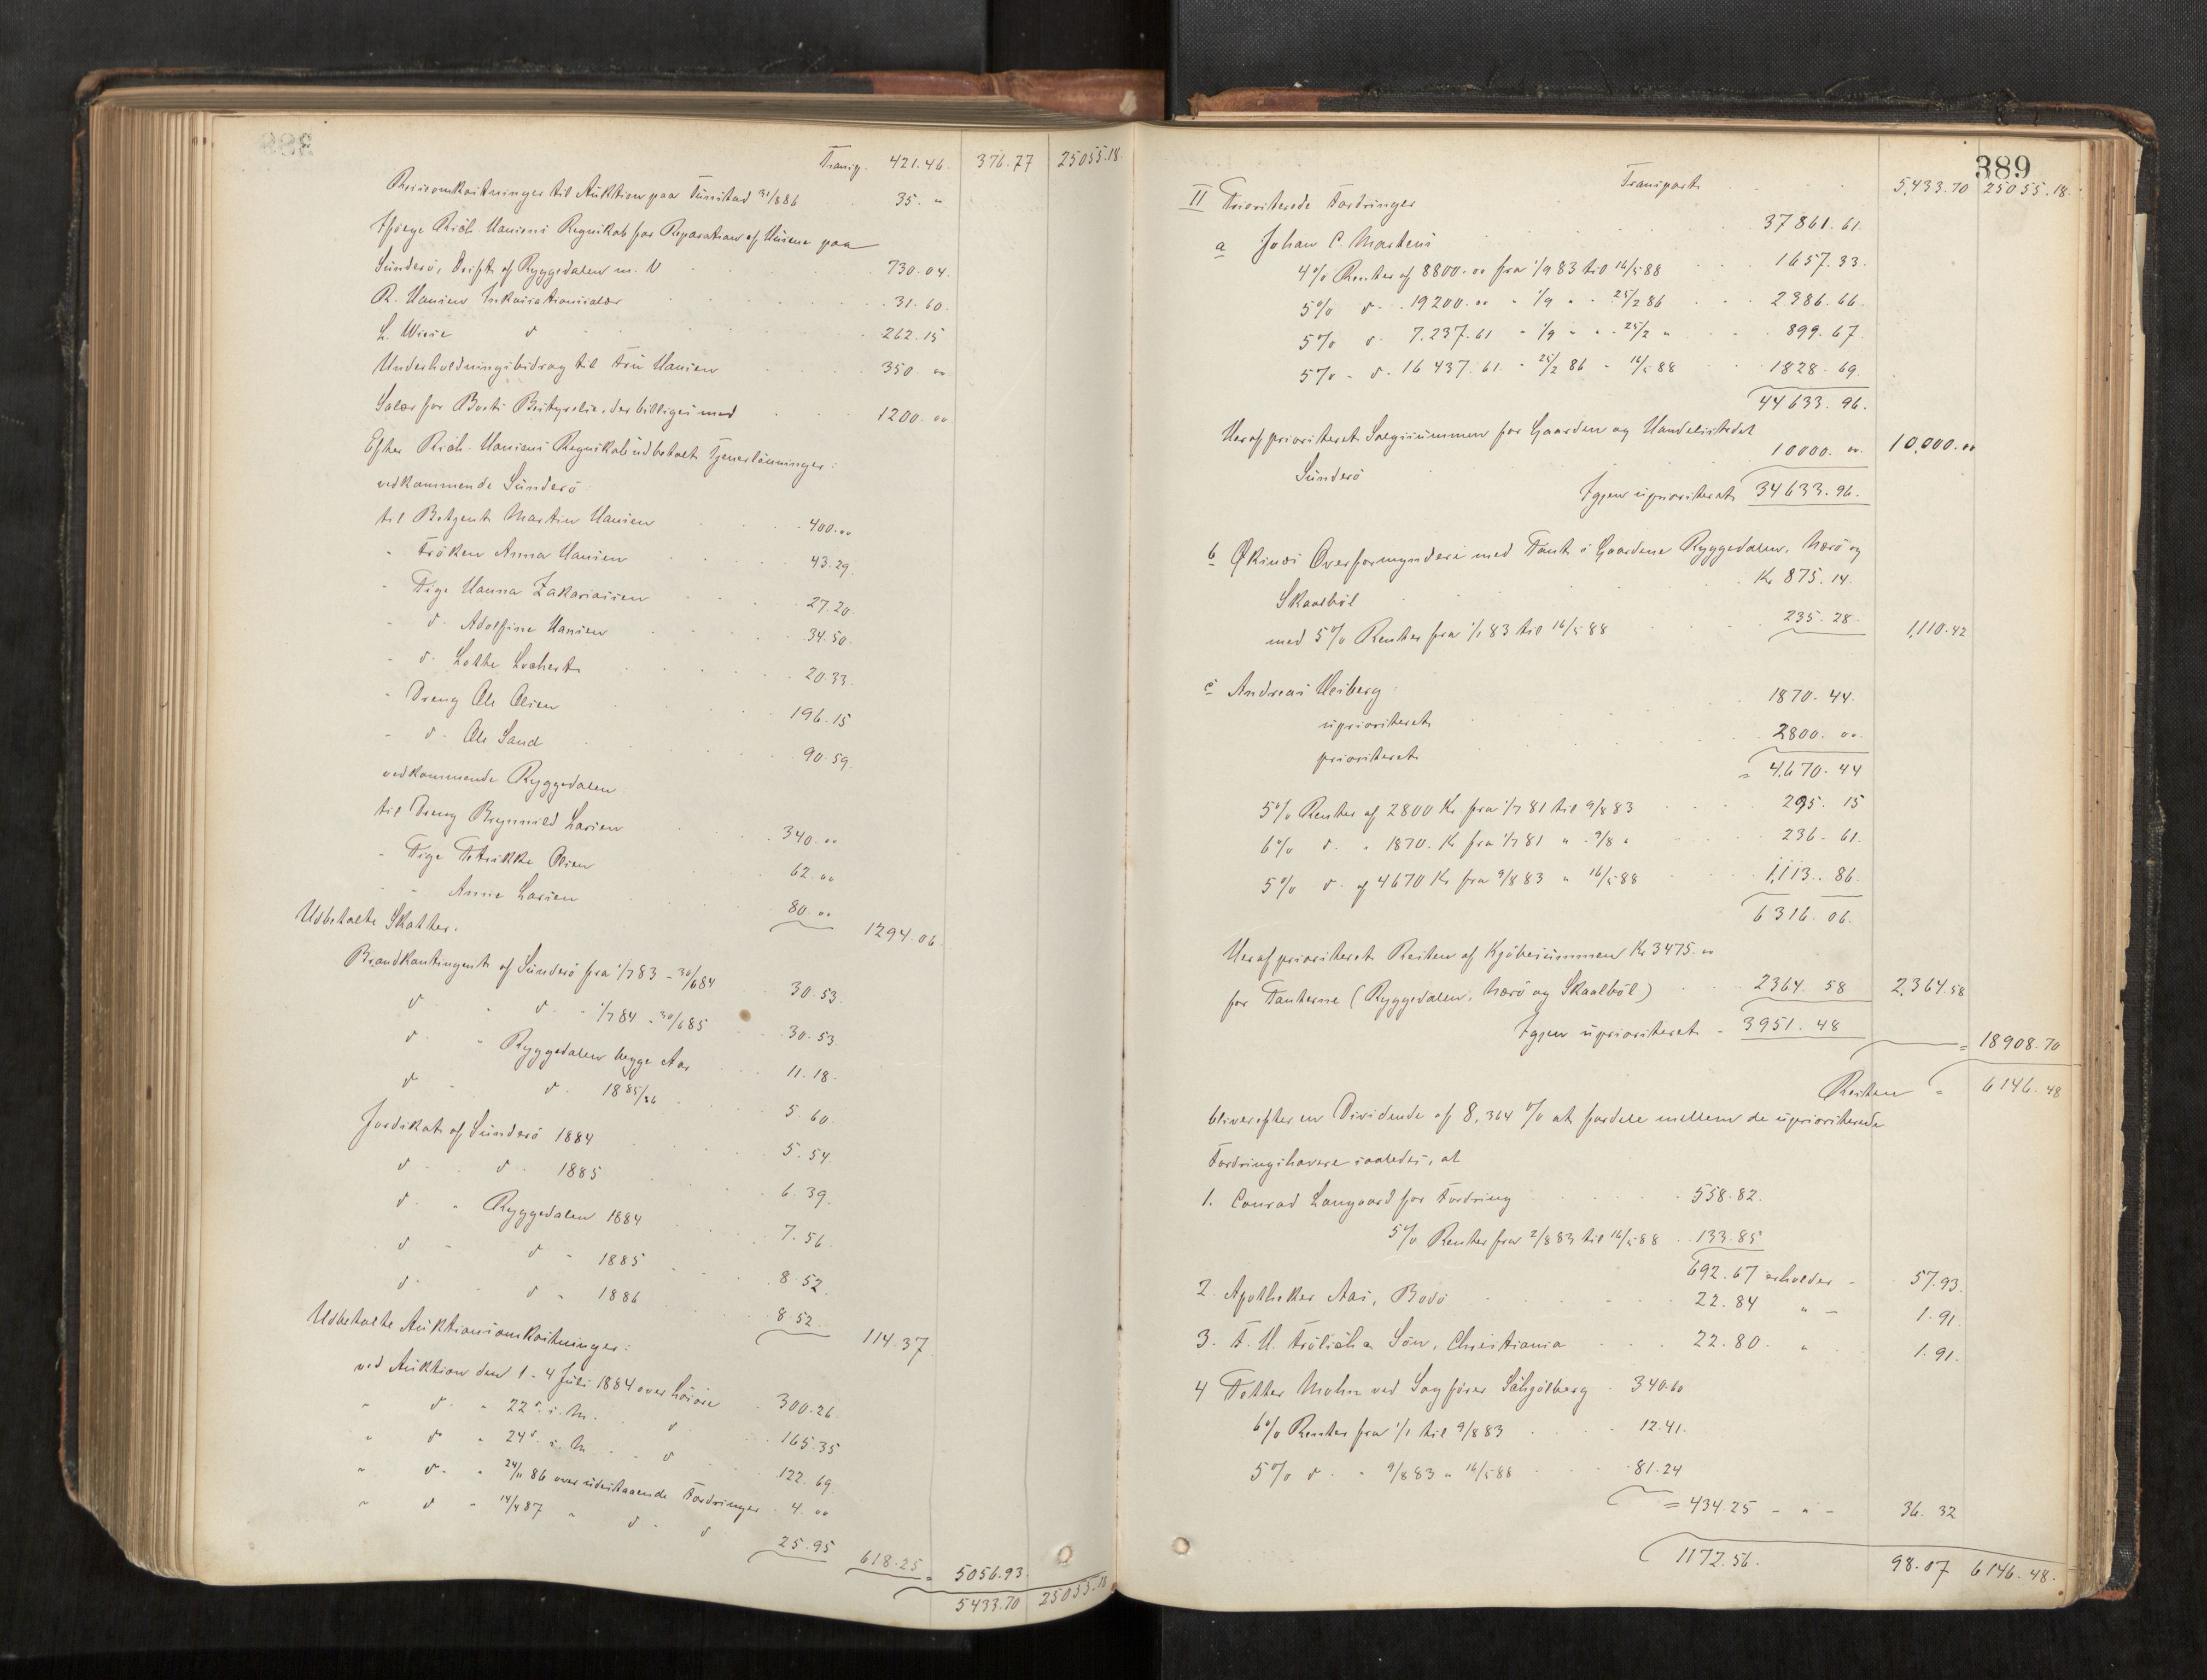 Transp. 421.46 376.77 25055.18.
Reiseomkostninger til Auktion paa Sundsö 31/8 86 35. "
Ifölge Rich. Hansens Regnskab for Reparation af Husene paa
Sundsö, Drift af Ryggedalen m. V 730.04.
R. Hansen Inkassationssalær 31.60
L. Wiese d 262.15
Underholdningsbidrag til Fru Hansen 350 "
Salær for Boets Bestyrelse, der billiges med 1200. "
Efter Rich. Hansens Regnskab udbetalt Tjenerlönninger:
vedkommende Sundsö:
til Betjent Martin Hansen 400. "
" Fröken Anna Hansen 43.29.
" Pige Hanna Zakariassen 27.20
" d. Adolfine Hansen 34.50.
" d. Lotte Lochert 20.33.
" Dreng Ole Olsen 196.15
" d. Ole Sand 90.59.
vedkommende Ryggedalen
til Dreng Brynnild Larsen 340. "
" Pige Petrikke Olsen 62. "
" " Anne Larsen 80. " 1294.06.
Udbetalte Skatter.
Brandkontingent af Sundsö fra 1/7 83 - 30/6 84 30.53.
d " d. - 1/7 84 - 30/6 85 30.53
d. " Ryggedalen begge Aar 11.18.
d " d. 1885/86 5.60.
Jordskat af Sundsö 1884 5.54.
d. . d. 1885 6.39.
d. " Ryggedalen 1884 7.56.
d " d " 1885 8.52.
d. " d " 1886 8.52. 114.37.
Udbetalte Auktionsomkostninger:
ved Auktion den 1 - 4 Juli 1884 over Lösöre 300.26.
" d. " 22d. s. M. d 165.35
" d. " 24d. s. M. d 122.69.
" d. " 24/11 86 over udestaaende Fordringer 4. "
" d " 14/4 87 " d " d 25.95 618.25 = 5056.93.
5433.70 25055.18
389
Transport 5,433.70 25055.18.
II Prioriterede Fordringer
a Johan C. Martens 37861.61.
4% Renter af 8800. " fra 1/9 83 til 16/5 88 1657.33.
5% d. 19200. " " 1/9 " " 25/2 86 2386.66.
5% d. 7.237.61 " 1/9 " " 25/2 " 899.67.
5% - d. 16437.61. " 25/2 86 - 16/5 88 1828.69.
44633.96.
Heraf prioriteret Salgssummen for Gaarden og Handelsstedet
Sundsö 10000. " 10,000. "
Igjen uprioriteret 34633.96.
b Øksnæs Overformynderi med Pant i Gaardene Ryggedalen, Nærö og
Skaalböl Kr 875.14.
med 5% Renter fra 1/1 83 til 16/5 88 235.28. 1,110.42
c Andreas Heiberg:
uprioriteret 1870.44.
prioriteret 2800. "
= 4,670.44
5% Renter af 2800 Kr fra 1/7 81 til 9/8 83 295.15
6% d. " 1870. Kr fra 1/7 81 " 9/8 " 236.61.
5% d. af 4670 Kr fra 9/8 83 " 16/5 88 1,113.86.
6316.06.
Heraf prioriteret Resten af Kjöbesummen Kr 3475. "
for Panterne (Ryggedalen, Nærö og Skaalböl) 2364.58 2,364.58
Igjen uprioriteret - 3951.48 = 18908.70
Resten = 6146.48
bliver efter en Dividende af 8,364 % at fordele mellem de uprioriterede
Fordringshavere saaledes, at
1. Conrad Langaard for Fordring 558.82.
5% Renter fra 2/8 83 til 16/5 88 133.85
692.67 erholder - 57.93.
2. Apotheker Aas, Bodö 22.84 " - 1.91.
3. F. H. Frölich & Sön, Christiania 22.80. " 1.91.
4 Petter Mohn ved Sagförer Schjölberg 340.60
6% Renter fra 1/1 til 9/8 83 12.41.
5% d. " 9/8 83 " 16/5 88 81.24
= 434.25 - " - 36.32
1172.56. 98.07 6146.48.